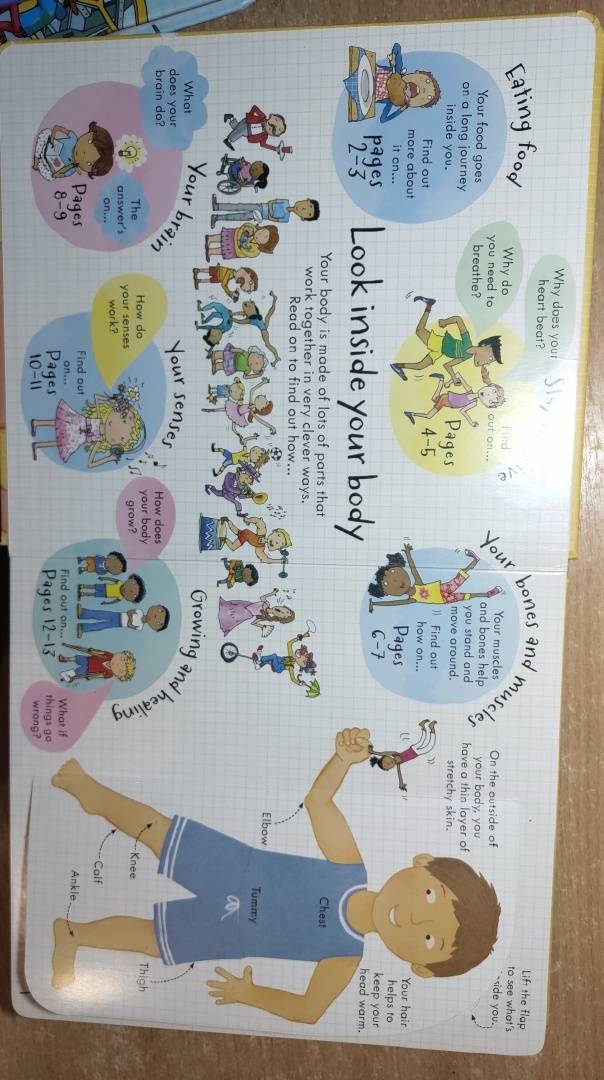 Eating food
Your food goes
on a long journey
inside you.
Find out
more about
it on...
pages
2-3
Why does your
heart beat?
Why do
you need to
breathe?
Find
out on...
Pages
4-5
Your bones and muscles
Your muscles
and bones help
you stand and
move around.
Find out
how on...
Pages
6-7
Look inside your body
Your body is made of lots of parts that
work together in very clever ways.
Read on to find out how...
Your brain
What
does your
brain do?
The
answer's
on...
Pages
8-9
Your senses
How do
your senses
work?
Find out
on...
Pages
10-11
Growing and healing
How does
your body
grow?
Find out on...
Pages 12-13
What if
things go
wrong?
Lift the flap
to see what's
you.
On the outside of
your body, you
have a thin layer of
stretchy skin.
Your hair
helps to
keep your
head warm.
Chest
Elbow
Tummy
Thigh
Knee
Calf
Ankle